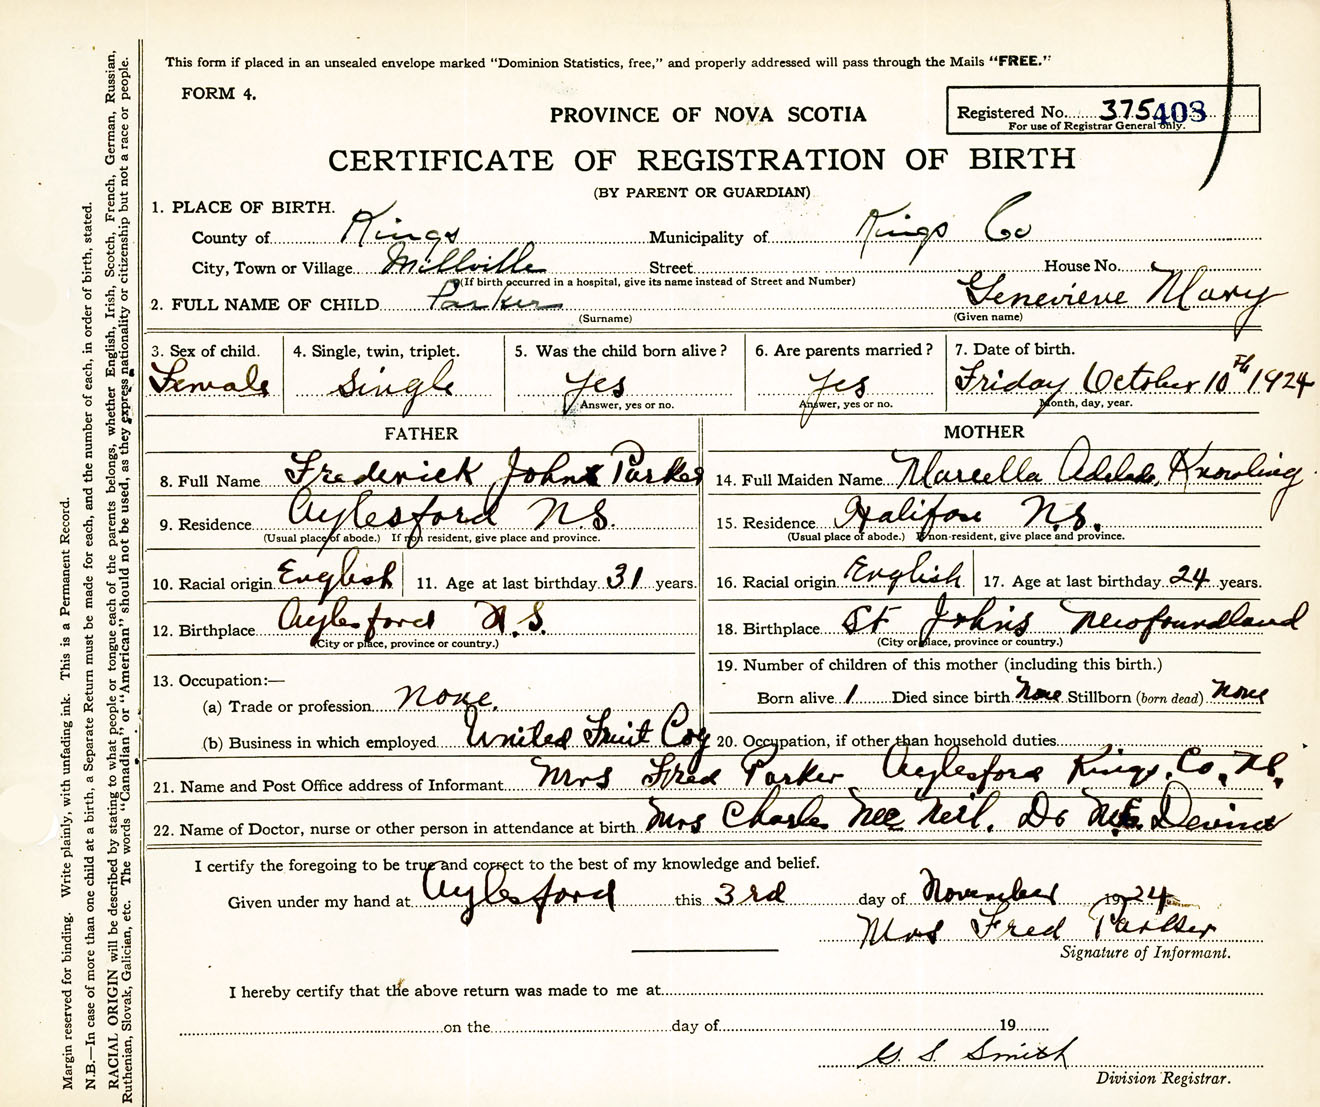 This form if placed in an unsealed envelope marked "Dominion Statistics, free," and properly addressed will pass through the Mails "FREE."
FORM 4.
PROVINCE OF NOVA SCOTIA
Registered No. 375 403
For use of Registrar General only.
CERTIFICATE OF REGISTRATION OF BIRTH
(BY PARENT OR GUARDIAN)
1. PLACE OF BIRTH.
County of Kings Municipality of Kings Co
City, Town or Village Millville Street House No.
(If birth occurred in a hospital, give its name instead of Street and Number)
2. FULL NAME OF CHILD Parker Genevieve Mary
(Surname) (Given name)
3. Sex of child. 4. Single, twin, triplet. 5. Was the child born alive? 6. Are parents married? 7. Date of birth.
Female single yes yes Friday October 10th 1924
Answer, yes or no. Answer, yes or no. Month, day, year.
FATHER
8. Full Name Frederick John Parker
9. Residence Aylesford N.S.
(Usual place of abode.) If non resident, give place and province.
10. Racial origin English 11. Age at last birthday 31 years.
12. Birthplace Aylesford N.S.
(City or place, province or country.)
13. Occupation:—
(a) Trade or profession None.
(b) Business in which employed United Fruit Coy
MOTHER
14. Full Maiden Name Marcella Adelade Knowling
15. Residence Halifax N.S.
(Usual place of abode.) If non-resident, give place and province.
16. Racial origin English 17. Age at last birthday 24 years.
18. Birthplace St John's Newfoundland
(City or place, province or country.)
19. Number of children of this mother (including this birth.)
Born alive 1 Died since birth None Stillborn (born dead) None
20. Occupation, if other than household duties
21. Name and Post Office address of Informant Mrs Fred Parker Aylesford Kings. Co. N.S.
22. Name of Doctor, nurse or other person in attendance at birth Mrs Charles Mc Neil. Dr
I certify the foregoing to be true and correct to the best of my knowledge and belief.
Given under my hand at Aylesford this 3rd day of November 1924
Mrs Fred Parker
Signature of Informant.
I hereby certify that the above return was made to me at
on the day of 19
G. S. Smith
Division Registrar.
Margin reserved for binding. Write plainly, with unfading ink. This is a Permanent Record.
N.B.—In case of more than one child at a birth, a Separate Return must be made for each, and the number of each, in order of birth, stated.
RACIAL ORIGIN will be described by stating to what people or tongue each of the parents belongs, whether English, Irish, Scotch, French, German, Russian,
Ruthenian, Slovak, Galician, etc. The words "Canadian" or "American" should not be used, as they express nationality or citizenship but not a race or people.